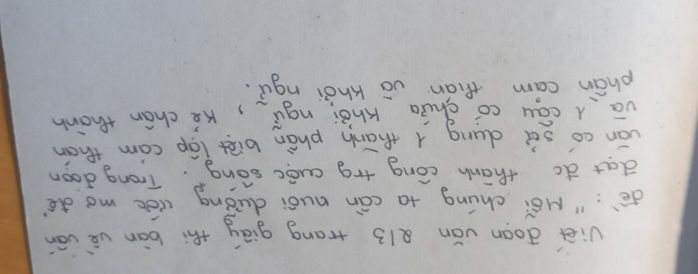 Viết đoạn văn 2/3 trang giấy thi bàn về vấn
đề: "Mỗi chúng ta cần nuôi dưỡng ước mơ để
đạt đc thành công trg cuộc sống. Trong đoạn
văn có sử dụng 1 thành phần biệt lập cảm thán
và 1 câu có chứa khởi ngữ, kẻ chân thành
phần cảm thán và khởi ngữ.